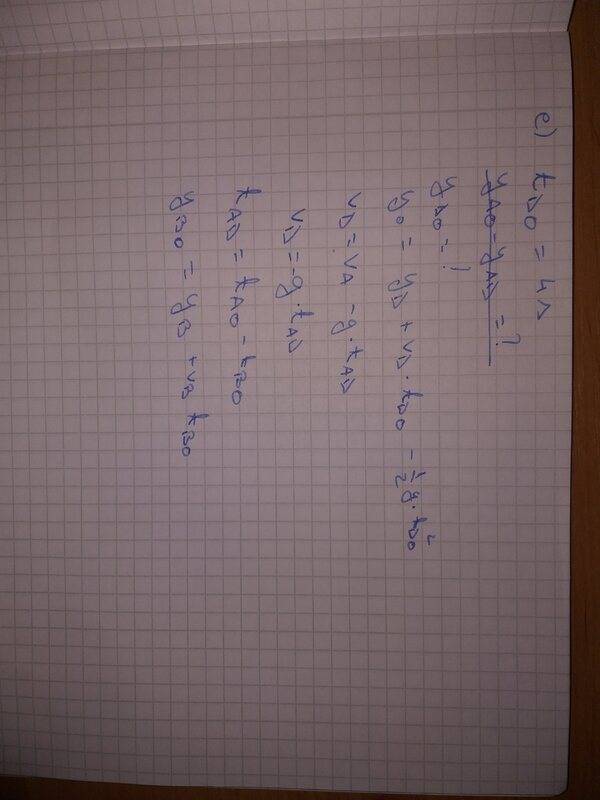 e) t_DO = 4 s
y_AO - y_AD = ?
y_DO = ?
y_O = y_D + v_D · t_DO - 1/2 g · t_DO²
v_D = v_A - g · t_AD
v_D = -g · t_AD
t_AD = t_AO - t_BO
y_BO = y_B + v_B t_BO